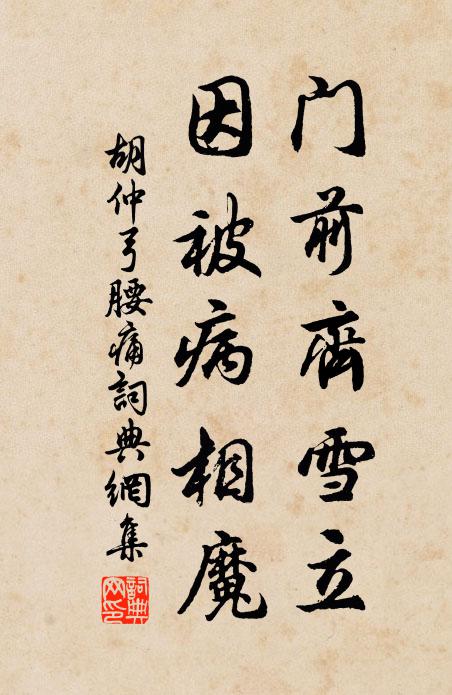 门前齊雪立
因被病相魔
胡仲弓腰痛詞典網集
詞典网印